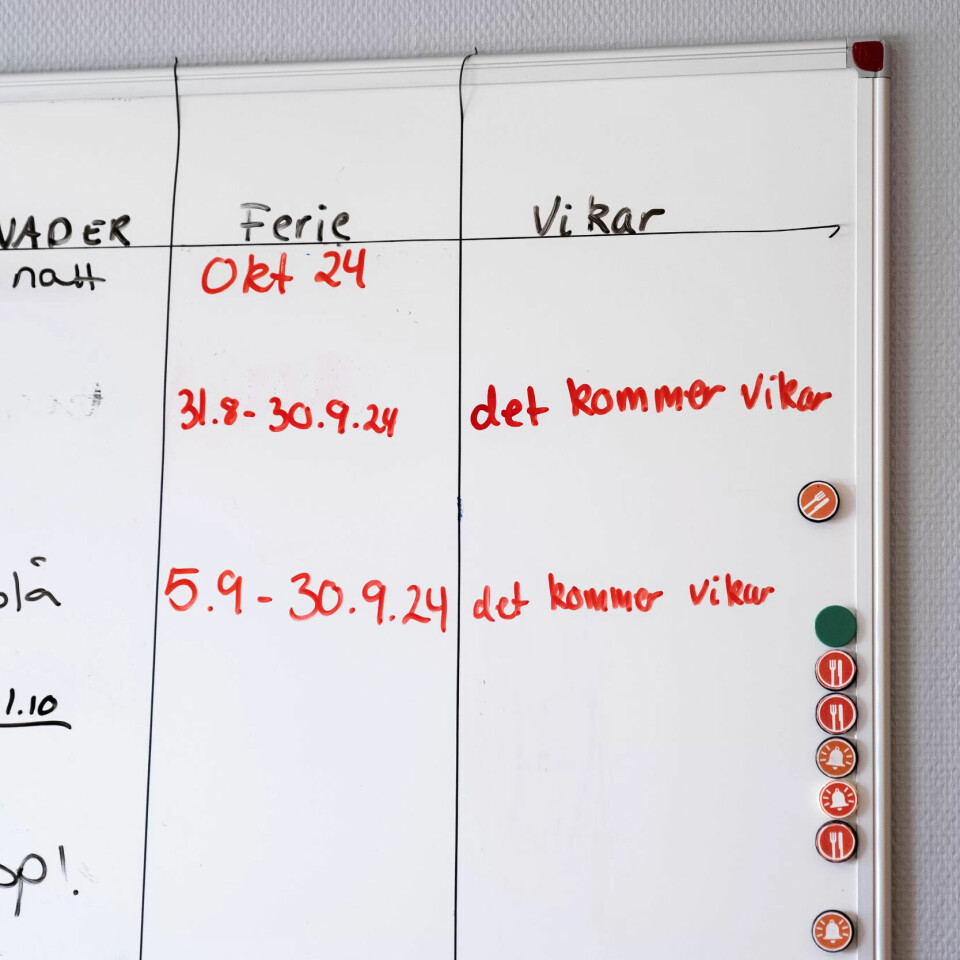 Ferie Vikar
natt Okt 24
31.8-30.9.24 det kommer vikar
5.9-30.9.24 det kommer vikar
1.10